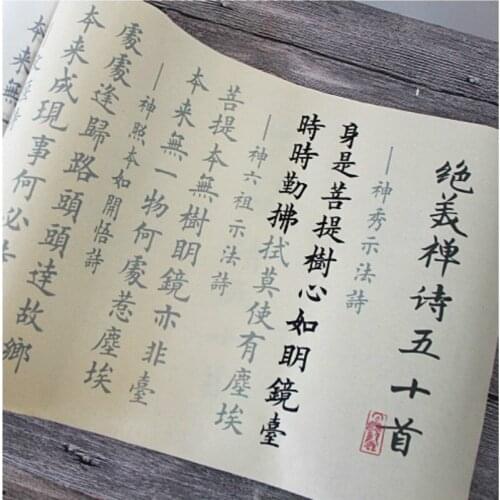 绝美禅诗五十首
——神秀示法詩
身是菩提樹心如明鏡臺
時時勤拂拭莫使有塵埃
——神六祖示法詩
菩提本無樹明鏡亦非臺
本来無一物何處惹塵埃
——神照本如開悟詩
處處逢歸路頭頭達故鄉
本来成現事何必